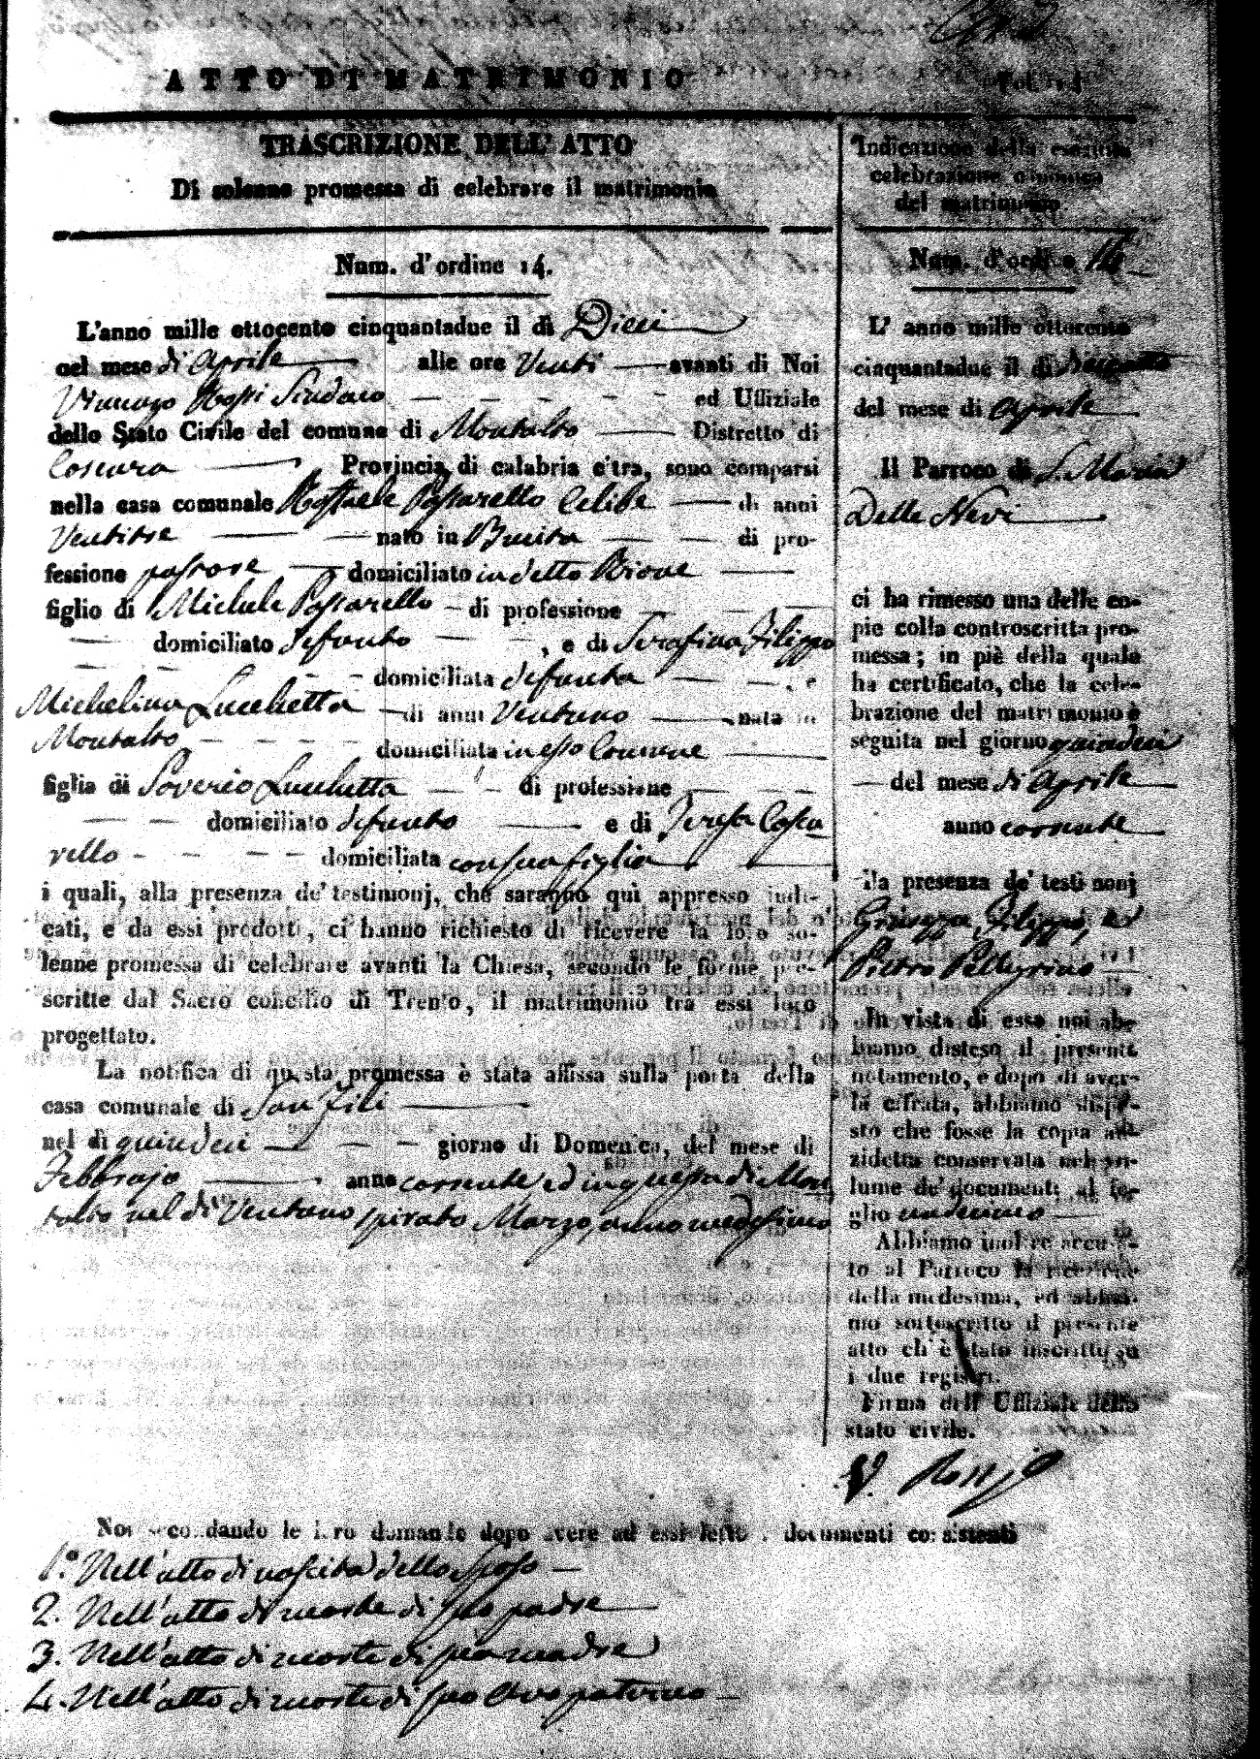 ATTO DI MATRIMONIO
TRASCRIZIONE DELL' ATTO
Di solenne promessa di celebrare il matrimonio
Num. d'ordine 14.
L'anno mille ottocento cinquantadue il dì Dieci
nel mese di Aprile alle ore Venti avanti di Noi
Rossi Sindaco ed Uffiziale
dello Stato Civile del comune di Montalto Distretto di
Cosenza Provincia di calabria citra, sono comparsi
nella casa comunale Raffaele Passarello Celibe di anni
Ventitre nato in di pro-
fessione domiciliato in detto
figlio di Michele Passarello di professione
domiciliato defunto , e di Serafina Filippo
domiciliata defunta , e
Michelina Lucchetta di anni Ventuno nata in
Montalto domiciliata in esso Comune
figlia di Saverio Lucchetta di professione
domiciliato defunto e di Teresa Casa
rello domiciliata con sua figlia
i quali, alla presenza de' testimonj, che saranno quì appresso indi-
cati, e da essi prodotti, ci hanno richiesto di ricevere la loro so-
lenne promessa di celebrare avanti la Chiesa, secondo le forme pre-
scritte dal Sacro concilio di Trento, il matrimonio tra essi loro
progettato.
La notifica di questa promessa è stata affissa sulla porta della
casa comunale di San Fili
nel dì quindeci giorno di Domenica, del mese di
Febbrajo anno corrente ed in questa di Mon
talto nel dì Ventuno spirato Marzo, anno medesimo
Indicazione della seguita
celebrazione canonica
del matrimonio.
Num. d'ordine 14
L' anno mille ottocento
cinquantadue il dì
del mese di Aprile
Il Parroco di S. Maria
Delle Nevi
ci ha rimesso una delle co-
pie colla controscritta pro-
messa; in piè della quale
ha certificato, che la cele-
brazione del matrimonio è
seguita nel giorno quindeci
del mese di Aprile
anno corrente
alla presenza de' testimonj
Filippo, e
Pietro Pellegrino
In vista di essa noi ab-
biamo disteso il presente
notamento, e dopo di aver-
la cifrata, abbiamo dispo-
sto che fosse la copia an-
zidetta conservata nel vo-
lume de' documenti al fo-
glio undecimo
Abbiamo inoltre accu-
to al Parroco la ricezione
della medesima, ed abbia-
mo sottoscritto il presente
atto ch' è stato inscritto su
i due registri.
Firma dell' Uffiziale dello
stato civile.
V. Rossi
Noi secondando le loro domande dopo avere ad essi letto i documenti consistenti
1.° Nell'atto di nascita dello Sposo
2. Nell'atto di morte di suo padre
3. Nell'atto di morte di sua madre
4. Nell'atto di morte di suo Avo paterno